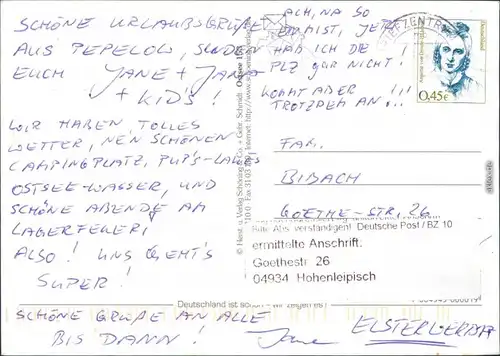 SCHÖNE URLAUBSGRÜßE
AUS PEPELOW, SENDEN
EUCH JANE + JANA
+ KID'S!
WIR HABEN TOLLES
WETTER, NEN SCHÖNEN
CAMPINGPLATZ, PUP'S-LAUES
OSTSEE-WASSER, UND
SCHÖNE ABENDE AM
LAGERFEUER!
ALSO! UNS GEHT'S
SUPER!
SCHÖNE GRÜßE AN ALLE
BIS DANN! Jane
ACH, NA SO
EIN MIST, JETZT
HAB ICH DIE
PLZ GAR NICHT!
KOMMT ABER !!!
TROTZDEM AN...!
BRIEFZENTRUM
Deutschland
0,45€
FAM.
BIBACH
GOETHE-STR. 26
Bitte Abs. verständigen! Deutsche Post / BZ 10
ermittelte Anschrift:
Goethestr 26
04934 Hohenleipisch
ELSTERWERDA
Deutschland ist schön - wir zeigen es!